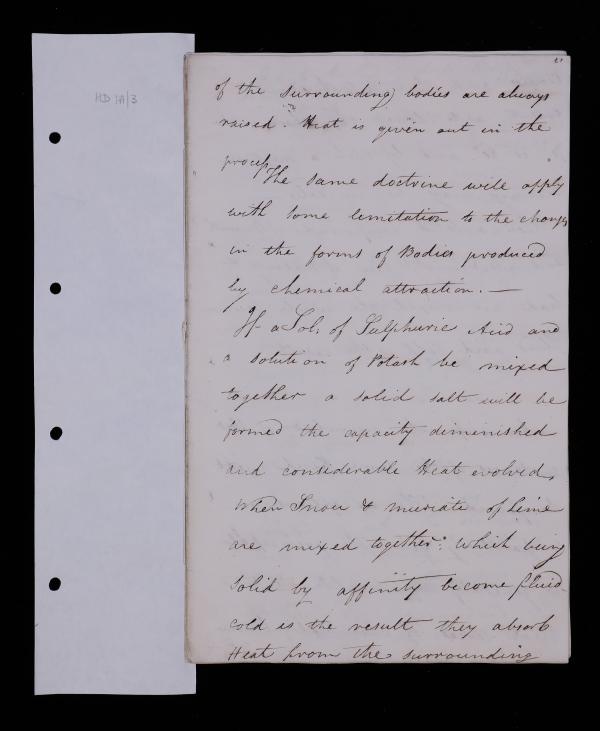 HD 1A/3
of the surrounding bodies are always
raised. Heat is given out in the
process
The same doctrine will apply
with some limitation to the changes
in the forms of Bodies produced
by chemical attraction. —
If a Sol: of Sulphuric Acid and
a solution of Potash be mixed
together a solid salt will be
formed the capacity diminished
and considerable Heat evolved,
When Snow & muriate of Lime
are mixed together: which being
solid by affinity become fluid
cold is the result they absorb
Heat from the surrounding